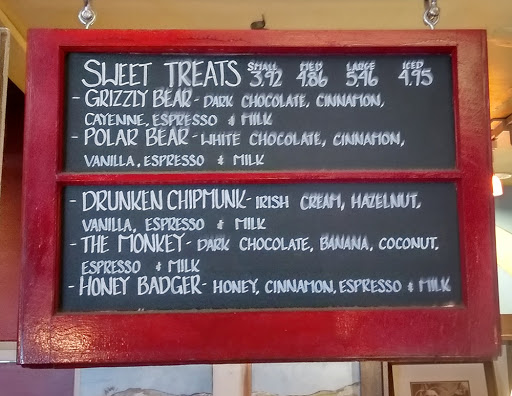 SWEET TREATS SMALL 3.92 MED 4.86 LARGE 5.46 ICED 4.95
- GRIZZLY BEAR - DARK CHOCOLATE, CINNAMON,
CAYENNE, ESPRESSO & MILK
- POLAR BEAR - WHITE CHOCOLATE, CINNAMON,
VANILLA, ESPRESSO & MILK
- DRUNKEN CHIPMUNK - IRISH CREAM, HAZELNUT,
VANILLA, ESPRESSO & MILK
- THE MONKEY - DARK CHOCOLATE, BANANA, COCONUT,
ESPRESSO & MILK
- HONEY BADGER - HONEY, CINNAMON, ESPRESSO & MILK